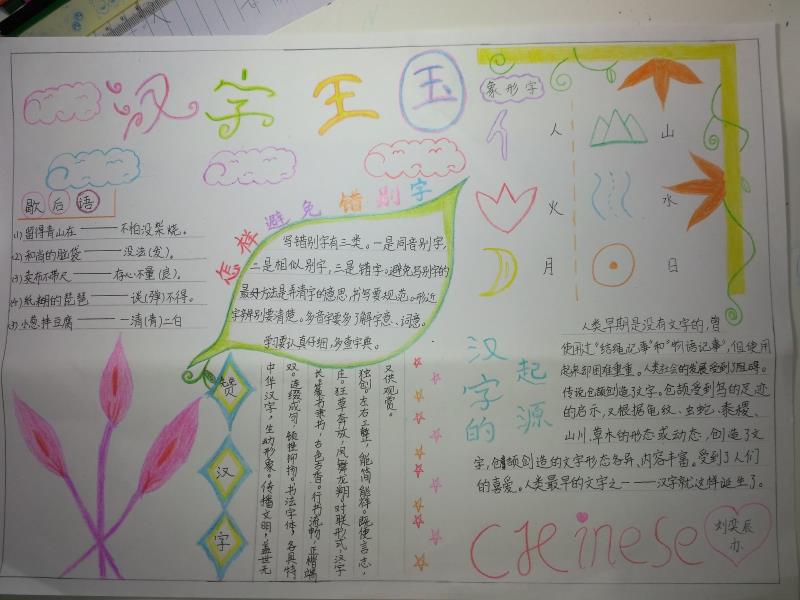 汉字王国
象形字
人
山
火
水
月
日
歇后语
(1)留得青山在——不怕没柴烧。
(2)和尚的脑袋——没法(发)。
(3)卖布不带尺——存心不量(良)。
(4)纸糊的琵琶——谈(弹)不得。
(5)小葱拌豆腐——一清(青)二白
怎样避免错别字
写错别字有三类。一是同音别字,
二是相似别字,三是错字。避免写别字的
最好方法是弄清字的意思,书写要规范。形近
字辨别要清楚。多音字要多了解字意、词意。
学习要认真仔细,多查字典。
赞汉字
中华汉字,生动形象。传播文明,盖世无
双。连缀成句,顿挫抑扬。书法字体,各具特
长。篆书隶书,古色古香。行书流畅,正楷端
庄。狂草奔放,凤舞龙翔。对联形式,汉字
独创。左右工整,能简能详。既便言志,
又供观赏。
汉字的起源
人类早期是没有文字的,曾
使用过"结绳记事"和"刻语记事",但使用
起来却困难重重。人类社会的发展受到了阻碍。
传说仓颉创造了文字。仓颉受到鸟的足迹
的启示,又根据龟纹、虫蛇、黍稷、
山川、草木的形态或动态,创造了文
字,仓颉创造的文字形态各异、内容丰富。受到了人们
的喜爱。人类最早的文字之一——汉字就这样诞生了。
CHinese
刘奕辰
办